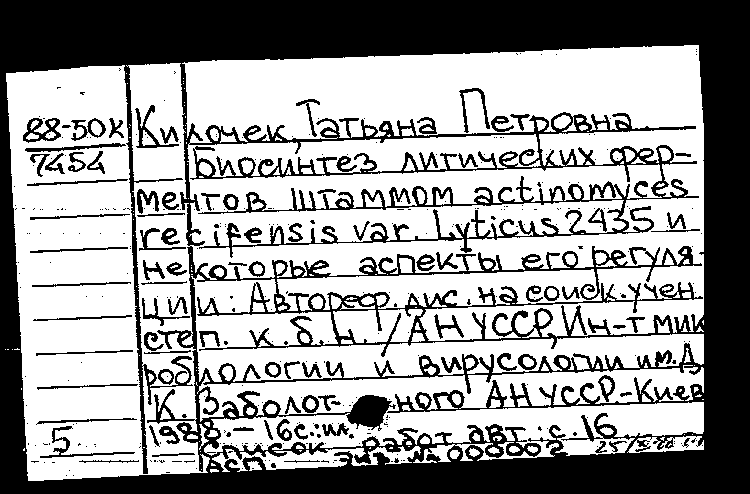 88-50К Килочек, Татьяна Петровна.
7454 Биосинтез литических фер-
ментов штаммом actinomyces
recifensis var. Lyticus 2435 и
некоторые аспекты его регуля-
ции: Автореф. дис. на соиск. учен.
степ. к. б. н. / АН УССР, Ин-т мик
робиологии и вирусологии им. Д.
К. Заболотного АН УССР.-Киев
1988.- 16с.: ил.
5 Список работ авт.: с. 16
Экз. № 000002